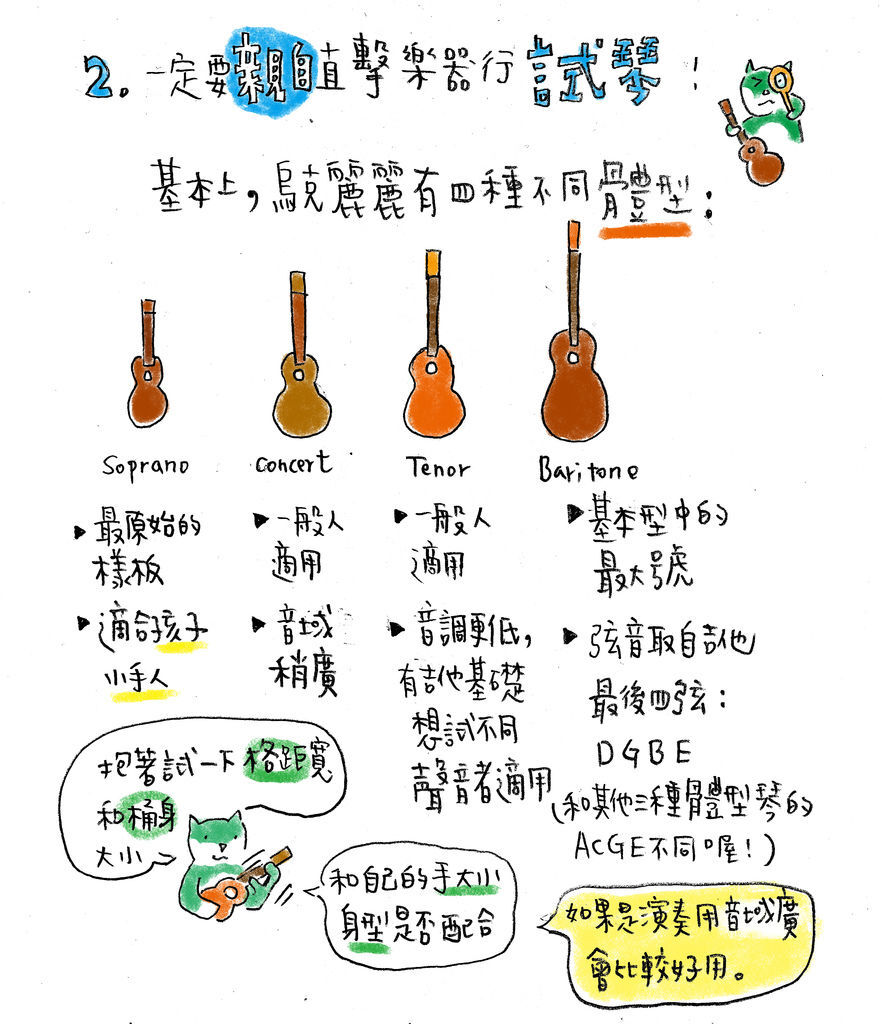 2. 一定要親自直擊樂器行試琴!
基本上,烏克麗麗有四種不同體型:
Soprano
▶ 最原始的
樣板
▶ 適合孩子
小手人
Concert
▶ 一般人
適用
▶ 音域
稍廣
Tenor
▶ 一般人
適用
▶ 音調更低,
有吉他基礎
想試不同
聲音者適用
Baritone
▶ 基本型中的
最大號
▶ 弦音取自吉他
最後四弦:
DGBE
(和其他三種體型琴的
ACGE不同喔!)
抱著試一下格距寬
和桶身
大小
和自己的手大小
身型是否配合
如果是演奏用音域廣
會比較好用。